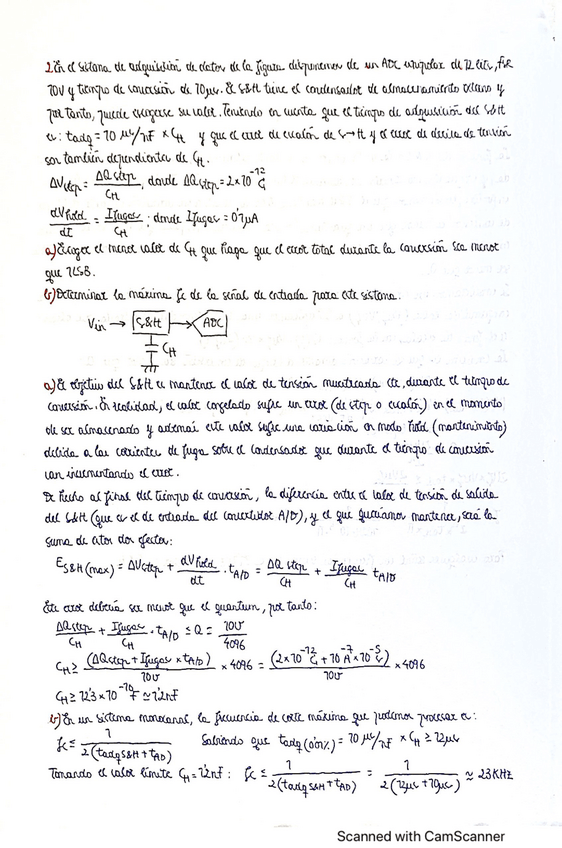 2. En el sistema de adquisición de datos de la figura disponemos de un ADC unipolar de 12 bits, FSR
10V y tiempo de conversión de 10μs. El S&H tiene el condensador de almacenamiento externo y
por tanto, puede escogerse su valor. Teniendo en cuenta que el tiempo de adquisición del S&H
es: tadq = 10 μs/nF × CH y que el error de escalón de S→H y el error de deriva de tensión
son también dependientes de CH.
ΔVstep = ΔQstep / CH, donde ΔQstep = 2×10⁻¹² C
dVhold / dt = Ifugas / CH; donde Ifugas = 0'1μA
a) Escoger el menor valor de CH que haga que el error total durante la conversión sea menor
que 1LSB.
b) Determinar la máxima fc de la señal de entrada para este sistema.
Vin → S&H → ADC
CH
a) El objetivo del S&H es mantener el valor de tensión muestreada cte, durante el tiempo de
conversión. En realidad, el valor congelado sufre un error (de step o escalón) en el momento
de ser almacenado y además este valor sufre una variación en modo hold (mantenimiento)
debida a las corrientes de fuga sobre el condensador que durante el tiempo de conversión
van incrementando el error.
De hecho al final del tiempo de conversión, la diferencia entre el valor de tensión de salida
del S&H (que es el de entrada del convertidor A/D), y el que queríamos mantener, será la
suma de estos dos efectos:
ES&H(max) = ΔVstep + dVhold / dt · tA/D = ΔQstep / CH + Ifugas / CH tA/D
Este error debería ser menor que el quantum, por tanto:
ΔQstep / CH + Ifugas / CH · tA/D ≤ Q = 10V / 4096
CH ≥ (ΔQstep + Ifugas × tA/D) / 10V × 4096 = (2×10⁻¹² C + 10⁻⁷ A × 10⁻⁵ s) / 10V × 4096
CH ≥ 12'3 × 10⁻¹⁰ F ≃ 1'2nF
b) En un sistema monocanal, la frecuencia de corte máxima que podemos procesar es:
fc ≤ 1 / 2(tadqS&H + tAD) Sabiendo que tadq(0'01%) = 10 μs/nF × CH ≥ 12μs
Tomando el valor límite CH = 1'2nF: fc ≤ 1 / 2(tadqS&H + tAD) = 1 / 2(12μs + 10μs) ≃ 23KHz
Scanned with CamScanner